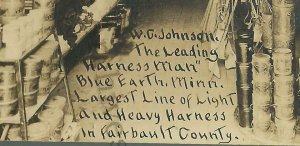 W.G. Johnson.
The Leading
Harness Man"
Blue Earth. Minn.
Largest Line of Light
and Heavy Harness
In Fairbault County.